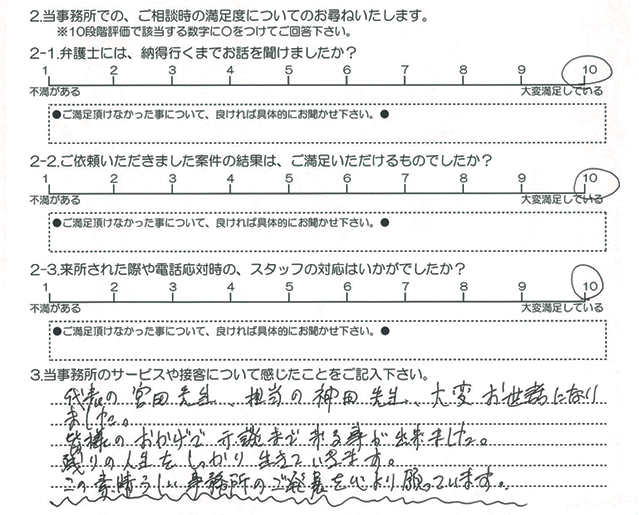 2.当事務所での、ご相談時の満足度についてのお尋ねいたします。
※10段階評価で該当する数字に〇をつけてご回答下さい。
2-1.弁護士には、納得行くまでお話を聞けましたか？
1 2 3 4 5 6 7 8 9 10
不満がある 大変満足している
●ご満足頂けなかった事について、良ければ具体的にお聞かせ下さい。●
2-2.ご依頼いただきました案件の結果は、ご満足いただけるものでしたか？
1 2 3 4 5 6 7 8 9 10
不満がある 大変満足している
●ご満足頂けなかった事について、良ければ具体的にお聞かせ下さい。●
2-3.来所された際や電話応対時の、スタッフの対応はいかがでしたか？
1 2 3 4 5 6 7 8 9 10
不満がある 大変満足している
●ご満足頂けなかった事について、良ければ具体的にお聞かせ下さい。●
3.当事務所のサービスや接客について感じたことをご記入下さい。
代表の宮田先生、担当の神田先生、大変お世話になり
ました。
皆様のおかげで示談まで来る事が出来ました。
残りの人生をしっかり生きていきます。
この素晴らしい事務所のご発展を心より願っています。